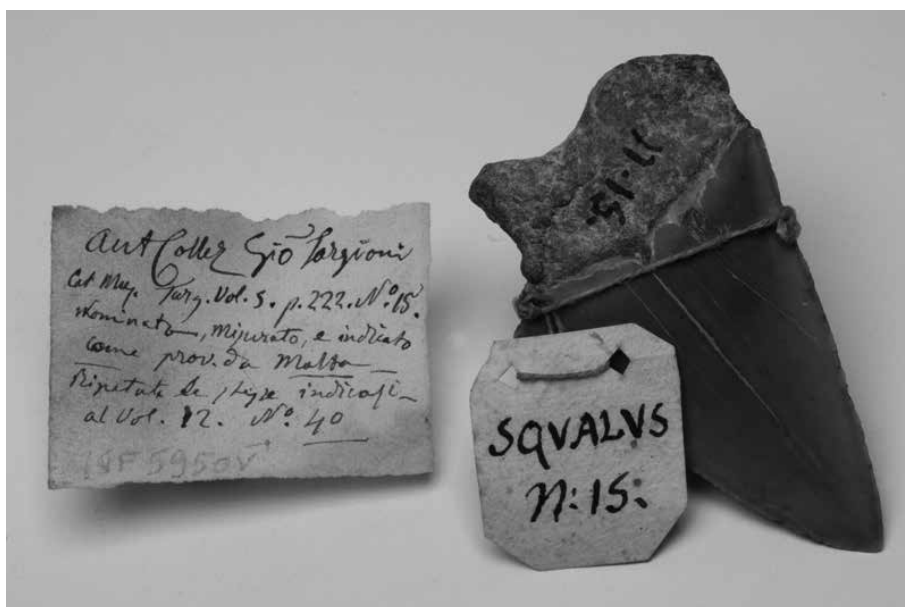 Ant Collez Gio Targioni
Cat Mus. Targ. Vol. 5. p. 222. N.° 15.
nominato, misurato, e indicato
come prov. da Malta
Ripetute le stesse indicasi-
al Vol. 12. N.° 40
IGF 5950V
SQVALVS
N: 15: